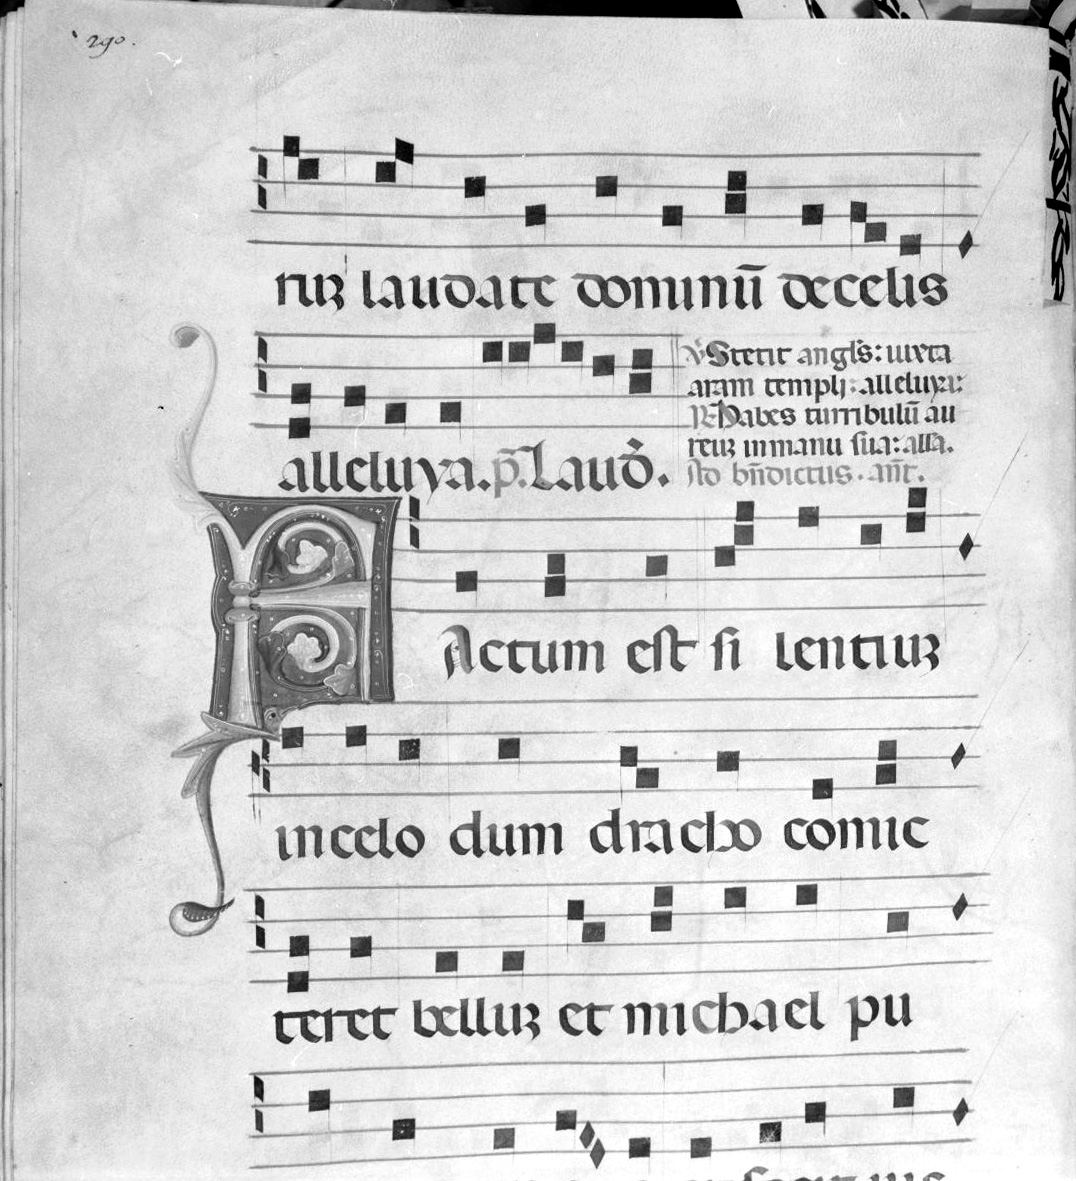 290.
tuꝫ laudate dominū de celis
alleluya. p̄. Laud̄.
℣ Stetit angl's: iuxta
aram templi: alleluya:
℞ Habes turribulū au
reuꝫ in manu sua: alla.
bn̄dictus. an̄t.
Factum est si lentiuꝫ
in celo dum dracho comit
teret belluꝫ et michael pu